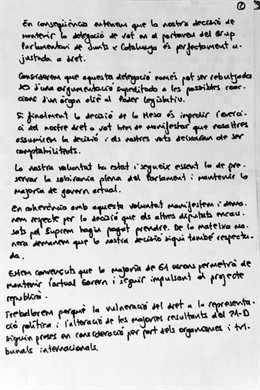 ②
En conseqüència entenem que la nostra decisió de
mantenir la delegació de vot en el portaveu del Grup
Parlamentari de Junts x Catalunya és perfectament a-
justada a dret.
Considerem que aquesta delegació només pot ser rebutjada
des d'una argumentació supeditada a les possibles reac-
cions d'un òrgan aliè al Poder Legislatiu.
Si finalment la decisió de la Mesa és impedir l'exerci-
ci del nostre dret a vot hem de manifestar que nosaltres
assumirem la decisió i els nostres vots deixaran de ser
comptabilitzats.
La nostra voluntat ha estat i segueix essent la de pre-
servar la sobirania plena del Parlament i mantenir la
majoria de govern actual.
En coherència amb aquesta voluntat manifestem i dema-
nem respecte per la decisió que els altres diputats encau-
sats pel Suprem hagin pogut prendre. De la mateixa ma-
nera demanem que la nostra decisió sigui també respecta-
da.
Estem convençuts que la majoria de 61 escons permetrà de
mantenir l'actual Govern i seguir impulsant el projecte
republicà.
Treballarem perquè la vulneració del dret a la represen-
ta­ció política i l'alteració de les majories resultants del 21-D
siguin preses en consideració per part dels organismes i tri-
bunals internacionals.